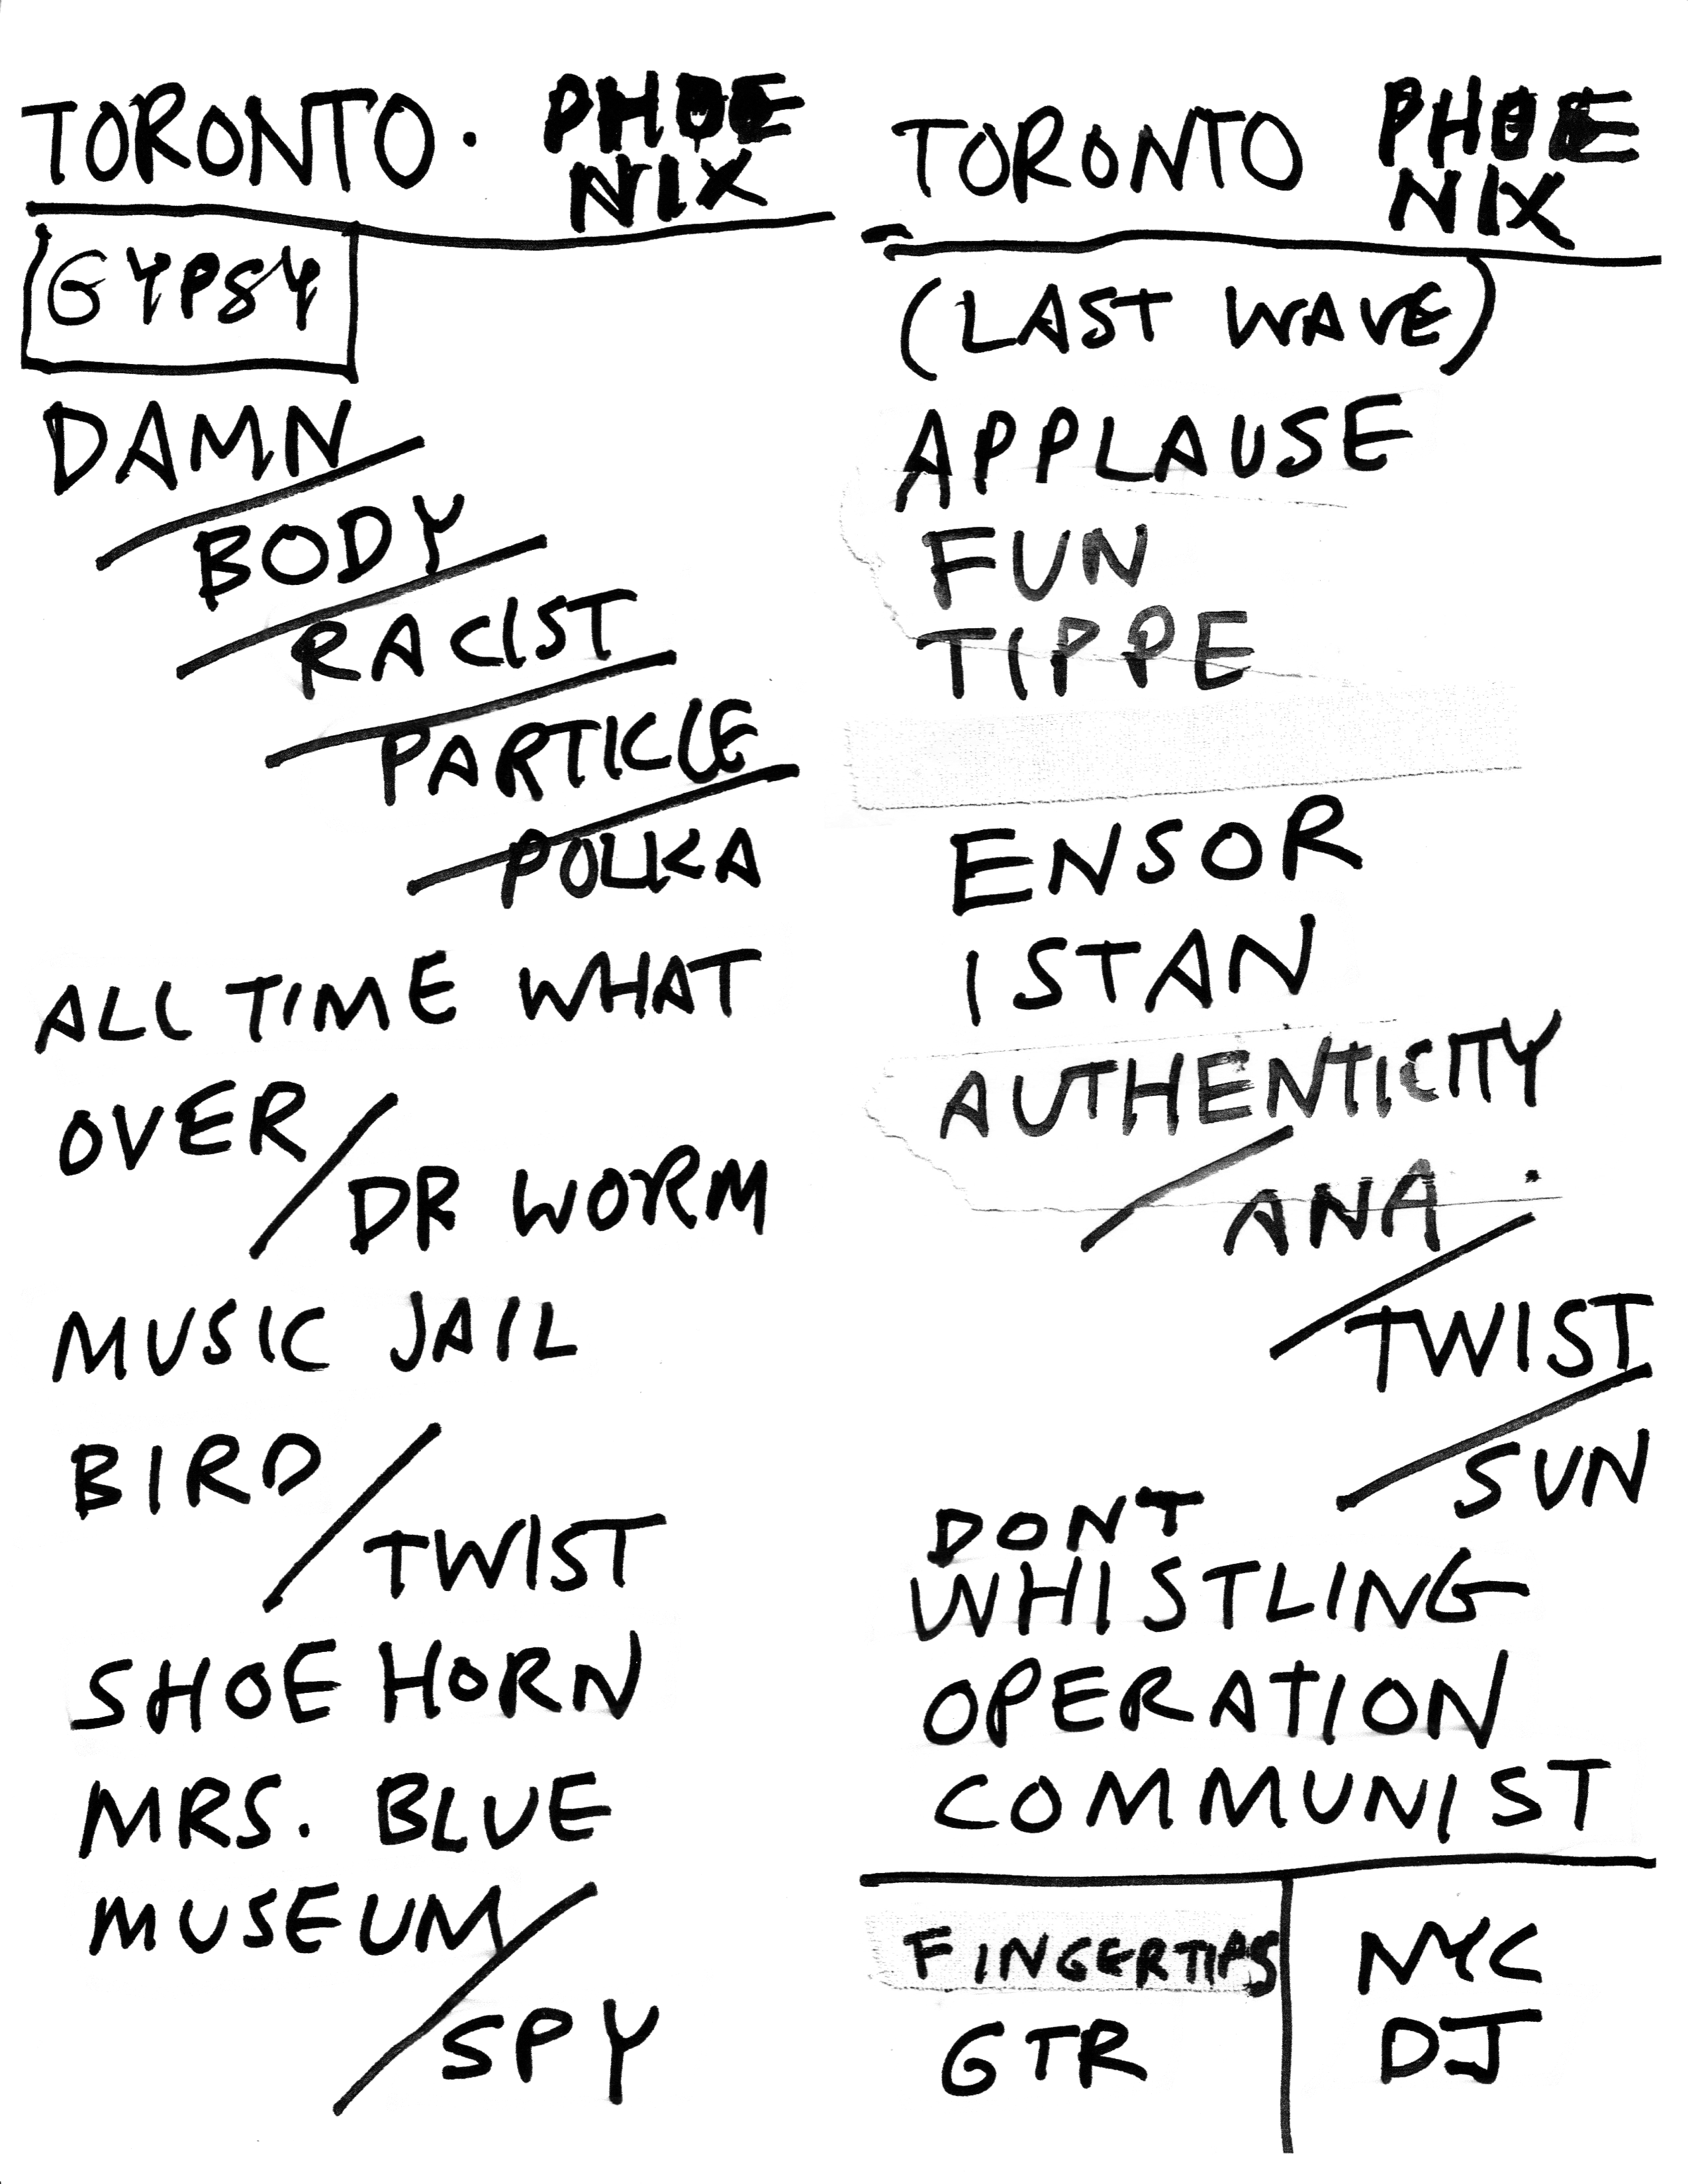 TORONTO · PHOE
NIX
GYPSY
DAMN
BODY
RACIST
PARTICLE
POLKA
ALL TIME WHAT
OVER /
DR WORM
MUSIC JAIL
BIRD /
TWIST
SHOE HORN
MRS. BLUE
MUSEUM /
SPY
TORONTO PHOE
NIX
(LAST WAVE)
APPLAUSE
FUN
TIPPE
ENSOR
ISTAN
AUTHENTICITY
/ ANA
/ TWIST
/ SUN
DONT
WHISTLING
OPERATION
COMMUNIST
FINGERTIPS
GTR
NYC
DJ